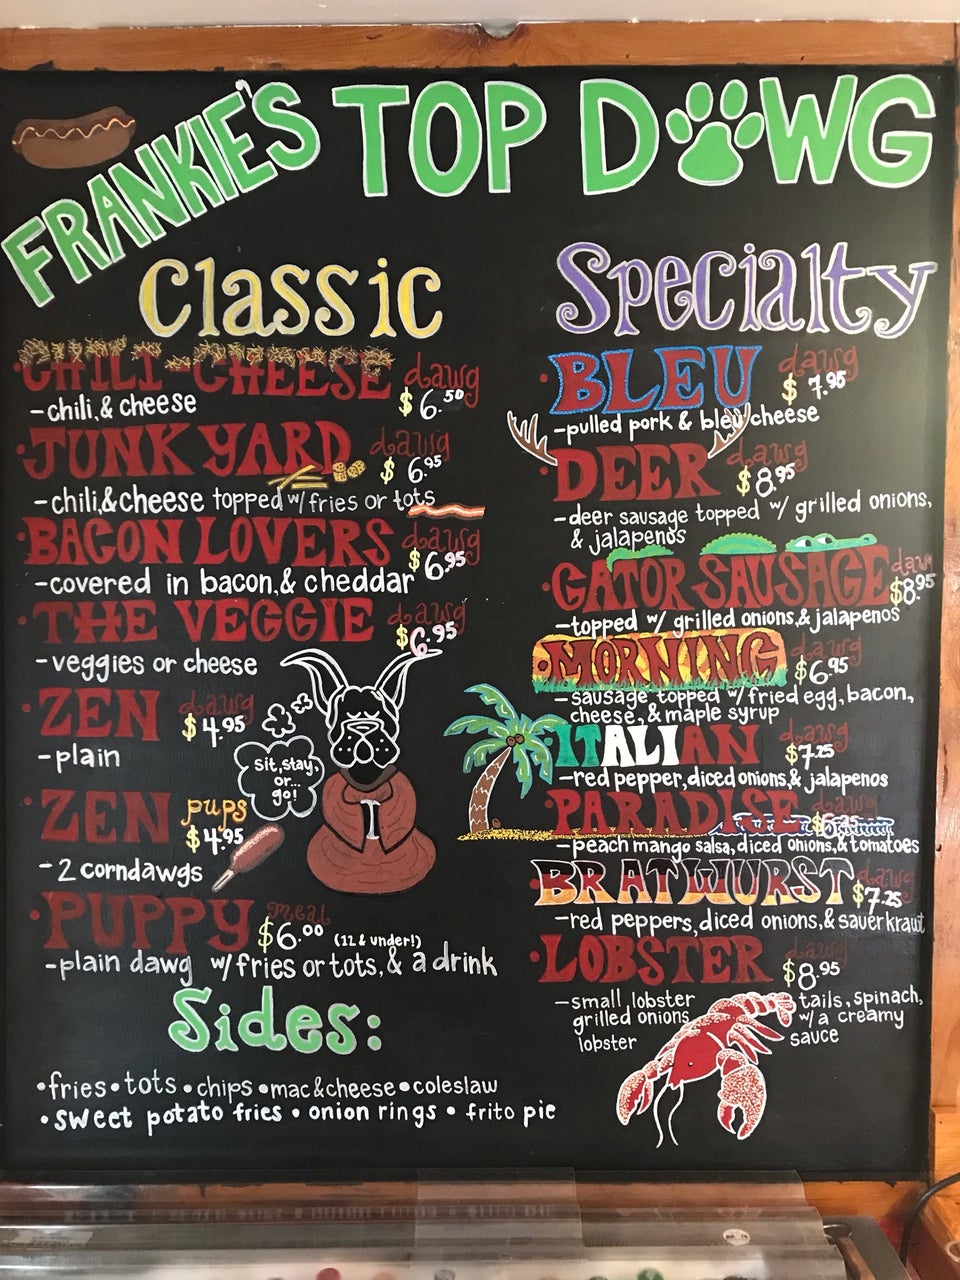 FRANKIE'S TOP DAWG
Classic
CHILI-CHEESE dawg
$6.50
-chili,& cheese
JUNK YARD dawg
$6.95
-chili,&cheese topped w/fries or tots
BACON LOVERS dawg
$6.95
-covered in bacon,& cheddar
THE VEGGIE dawg
$6.95
-veggies or cheese
ZEN dawg
$4.95
-plain
sit, stay,
or...
go!
ZEN pups
$4.95
-2 corndawgs
PUPPY meal
$6.00 (12 & under!)
-plain dawg w/fries or tots,& a drink
Sides:
•fries•tots•chips•mac&cheese•coleslaw
•sweet potato fries•onion rings•frito pie
Specialty
BLEU dawg
$7.95
-pulled pork & bleu cheese
DEER dawg
$8.95
-deer sausage topped w/ grilled onions,
& jalapenos
GATOR SAUSAGE dawg
$8.95
-topped w/ grilled onions,&jalapenos
MORNING dawg
$6.95
-sausage topped w/fried egg, bacon,
cheese,& maple syrup
ITALIAN dawg
$7.25
-red pepper,diced onions,& jalapenos
PARADISE dawg
-peach mango salsa,diced onions,&tomatoes
BRATWURST dawg
$7.25
-red peppers,diced onions,& sauerkraut
LOBSTER dawg
$8.95
-small lobster tails, spinach,
grilled onions w/a creamy
lobster sauce